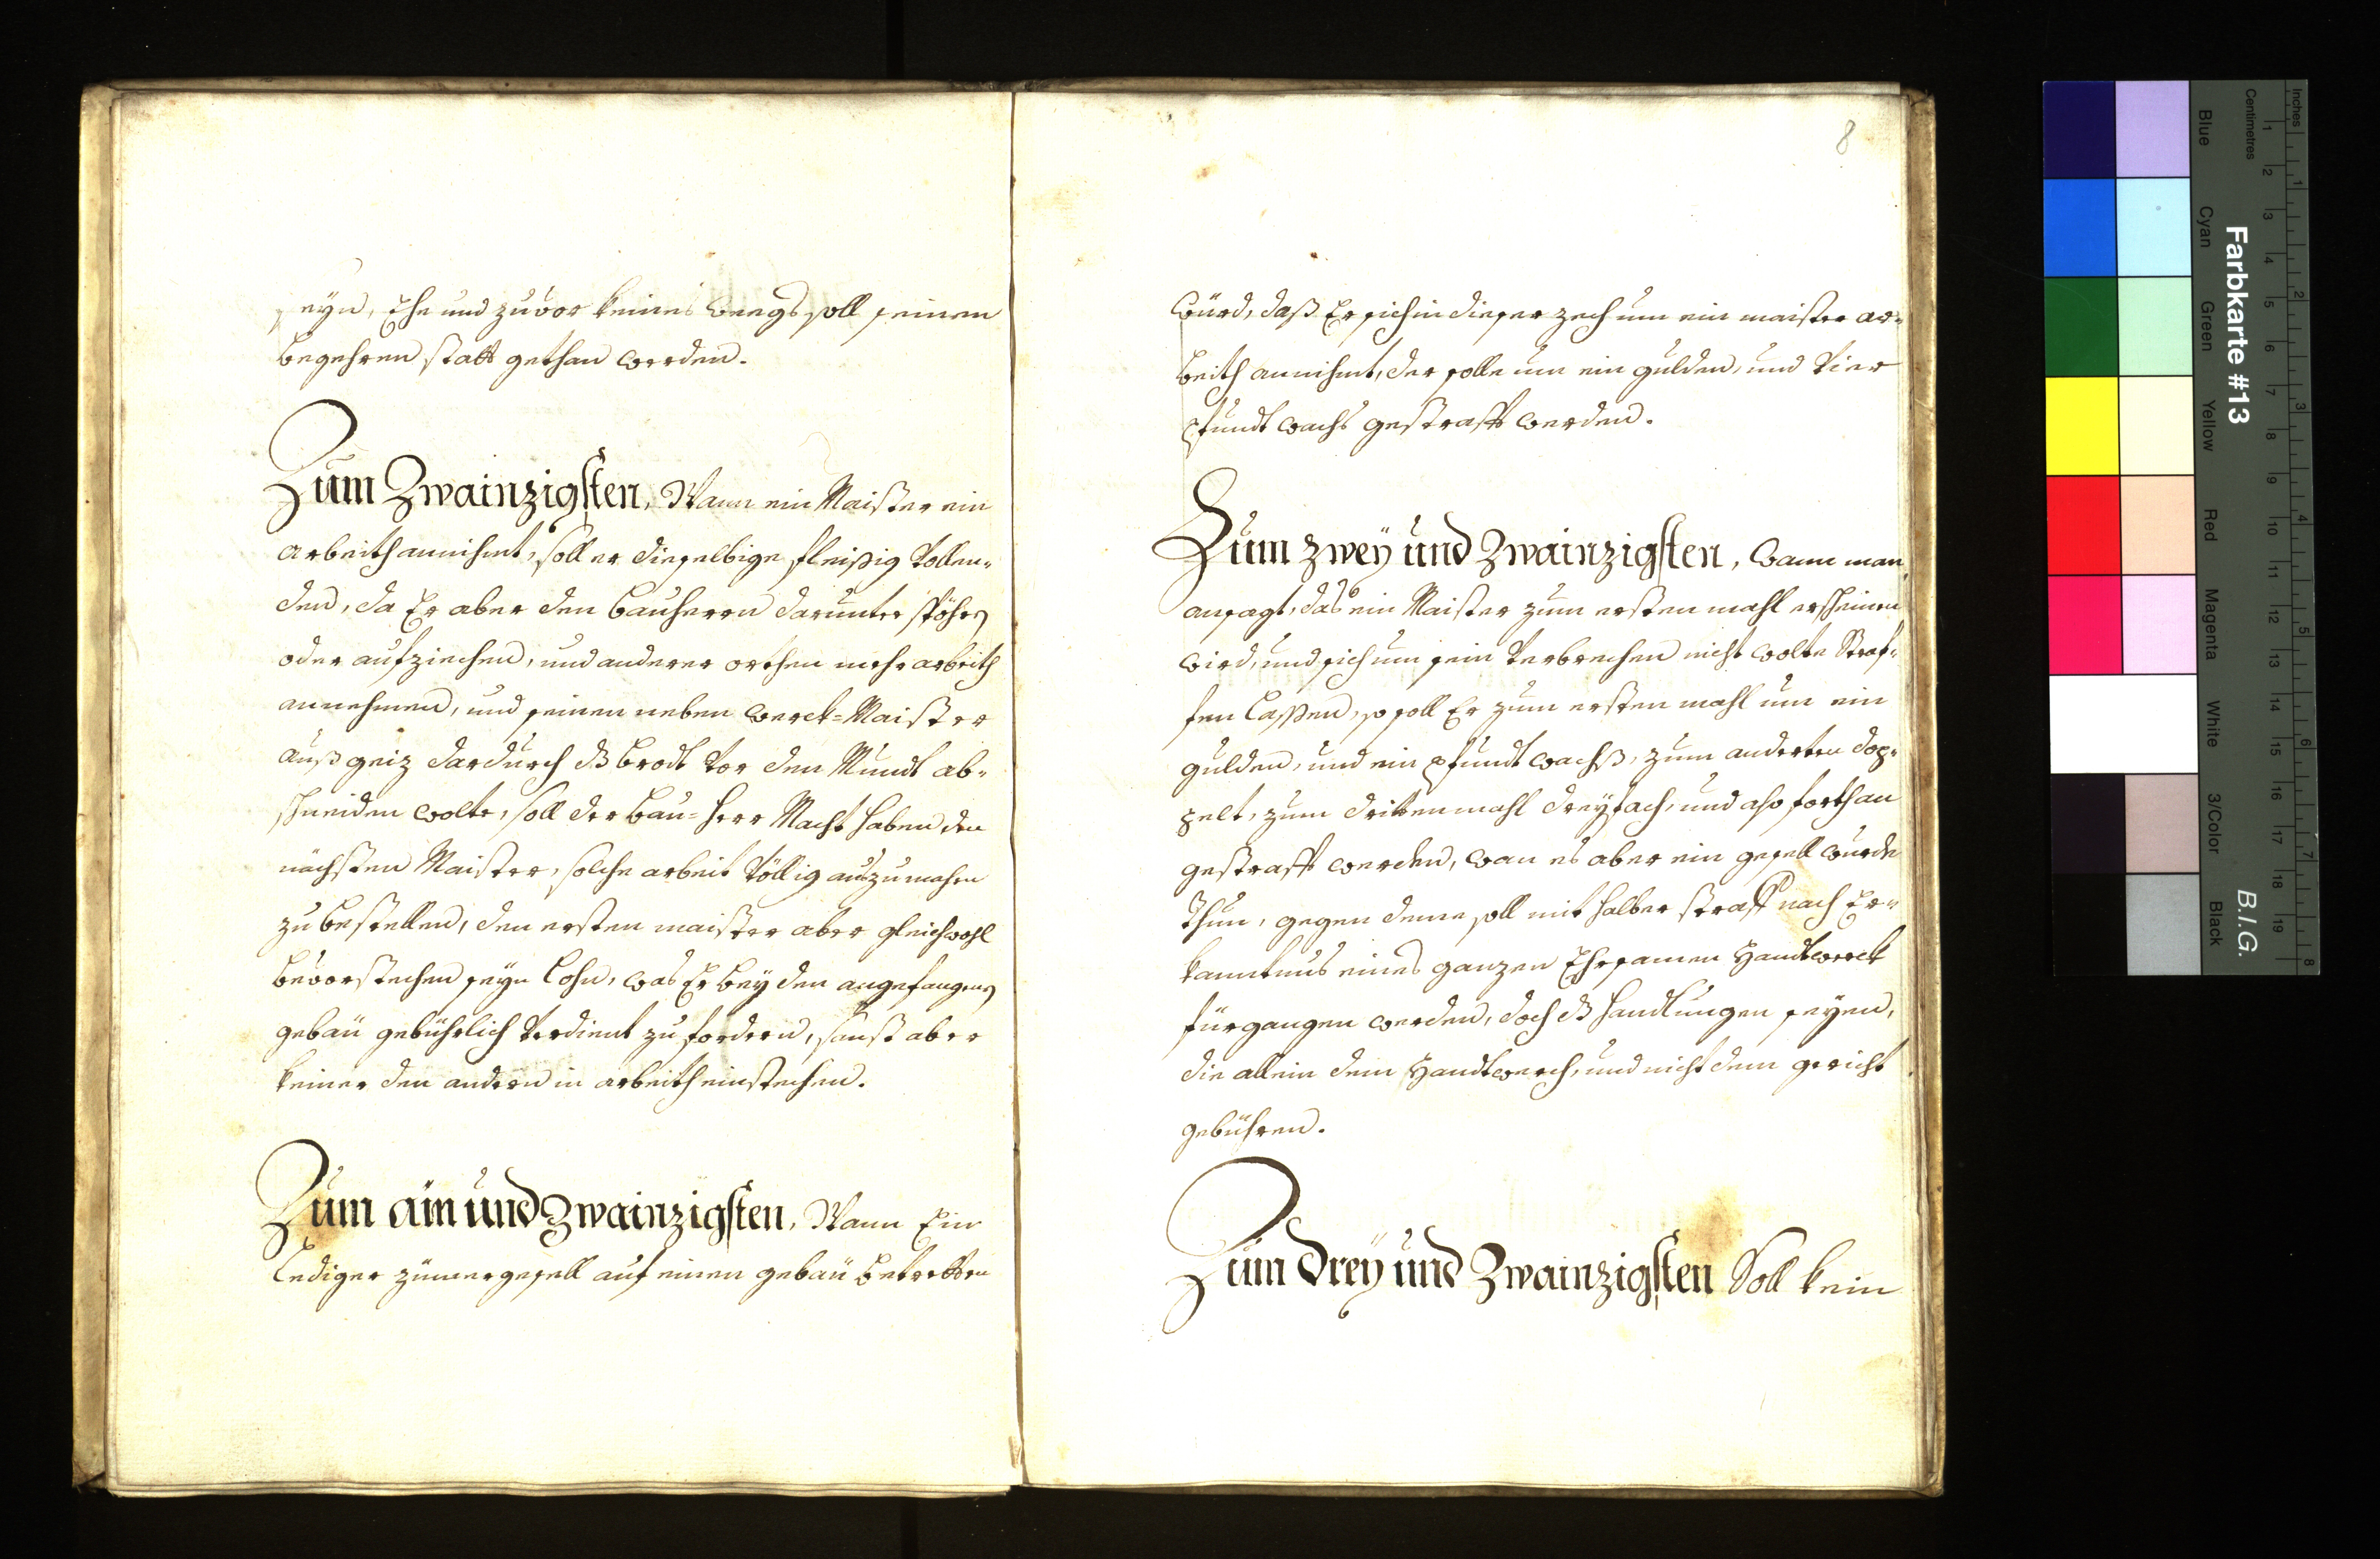 seyn, Ehe und zuvor keines weegs soll seinen
begehren statt gethan werden.
Zum Zwainzigsten, Wann ein Maister ein
arbeith annihmt, soll er dieselbige fleißig vollen-
den, da Er aber den bauherrn darunter
oder aufziechen, und anderer orthen mehr arbeith
annehmen, und seinen neben werck-Maister
auß geiz dardurch dß brodt vor den Mundt ab-
schneiden wolte, soll der bau-herr Macht haben den
nächsten Maister, solche arbeit völlig auszumahen
zu bestellen, den ersten maister aber gleichwohl
bevorstechen seyn lohn, was Er bey den angefangenen
gebäu gebührlich verdient zu fordern, sonst aber
keiner den andern in arbeith einstechen.
Zum ain und Zwainzigsten, Wann Ein
lediger zimergesell auf einen gebäu betretten
8
würd, daß Er sich in dieser zech um ein maister ar-
beith annihmt, der solle um ein gulden, und vier
pfundt wachs gestrafft werden.
Zum zwey und Zwainzigsten, wann man
ansagt, das ein Maister zum ersten mahl erscheinen
wird, und sich um sein verbrechen nicht wolte Straf-
fen laßen, so soll Er zum ersten mahl um ein
gulden, und ein pfundt wachß, zum anderten dop-
pelt, zum dritten mahl dreyfach, und also forthan
gestrafft werden, wan es aber ein gesell wurde
thun, gegen deme soll mit halber straff nach Er-
kanntnus eines ganzen Ehrsamen Handtwerck
fürgangen werden, doch dß handlungen seyen,
die allein dem Handtwerch, und nicht dem gericht
gebühren.
Zum drey und Zwainzigsten Soll kein
Inches
Centimetres
Farbkarte #13
B.I.G.
Blue
Cyan
Green
Yellow
Red
Magenta
White
3/Color
Black
1 2 3 4 5 6 7 8 9 10 11 12 13 14 15 16 17 18 19
1 2 3 4 5 6 7 8